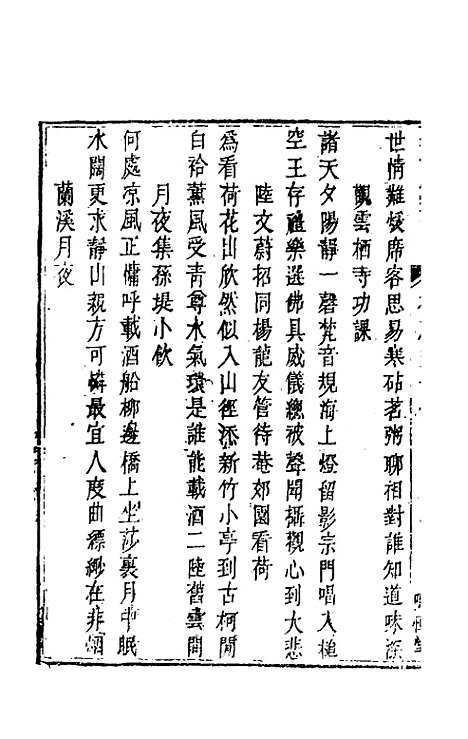 世情難煖席客思易寒砧茗粥聊相對誰知道味深
觀雲栖寺功課
諸天夕陽靜一磬梵音規海上燈留影宗門唱入槌
空王存禮樂選佛具威儀總被聲聞攝觀心到大悲
陸文蔚招同楊龍友管待菴郊園看荷
為看荷花山欣然似入山徑添新竹小亭到古柯閒
白袷薰風受青尊水氣環是誰能載酒二陸舊雲間
月夜集孫堤小飲
何處凉風正傭呼載酒船柳邊橋上坐莎裏月中眠
水闊更求靜山親方可憐最宜人度曲縹緲在非烟
蘭溪月夜